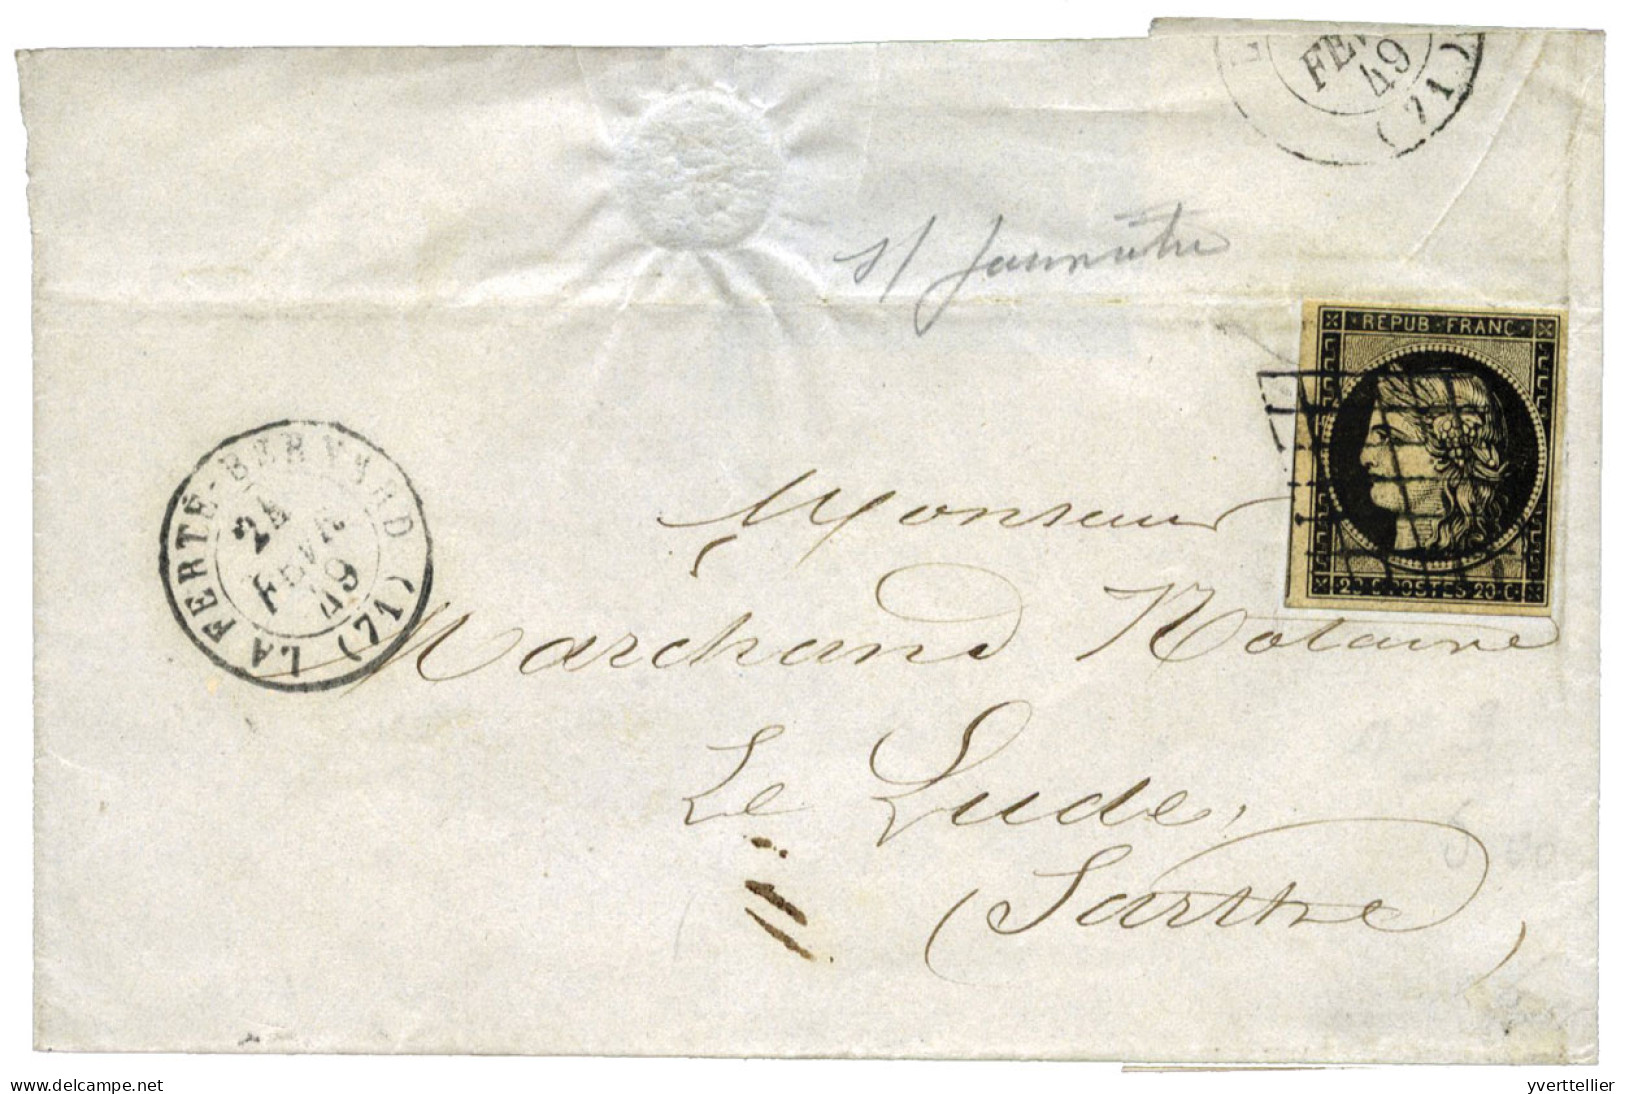 FEV
49
(71)
s/ jaunâtre
REPUB · FRANC ·
20 C. POSTES 20 C.
LA FERTÉ-BERNARD (71)
24
FEVR
49
Monsieur
Marchand Notaire
Le Lude,
(Sarthe)
www.delcampe.net
yverttellier